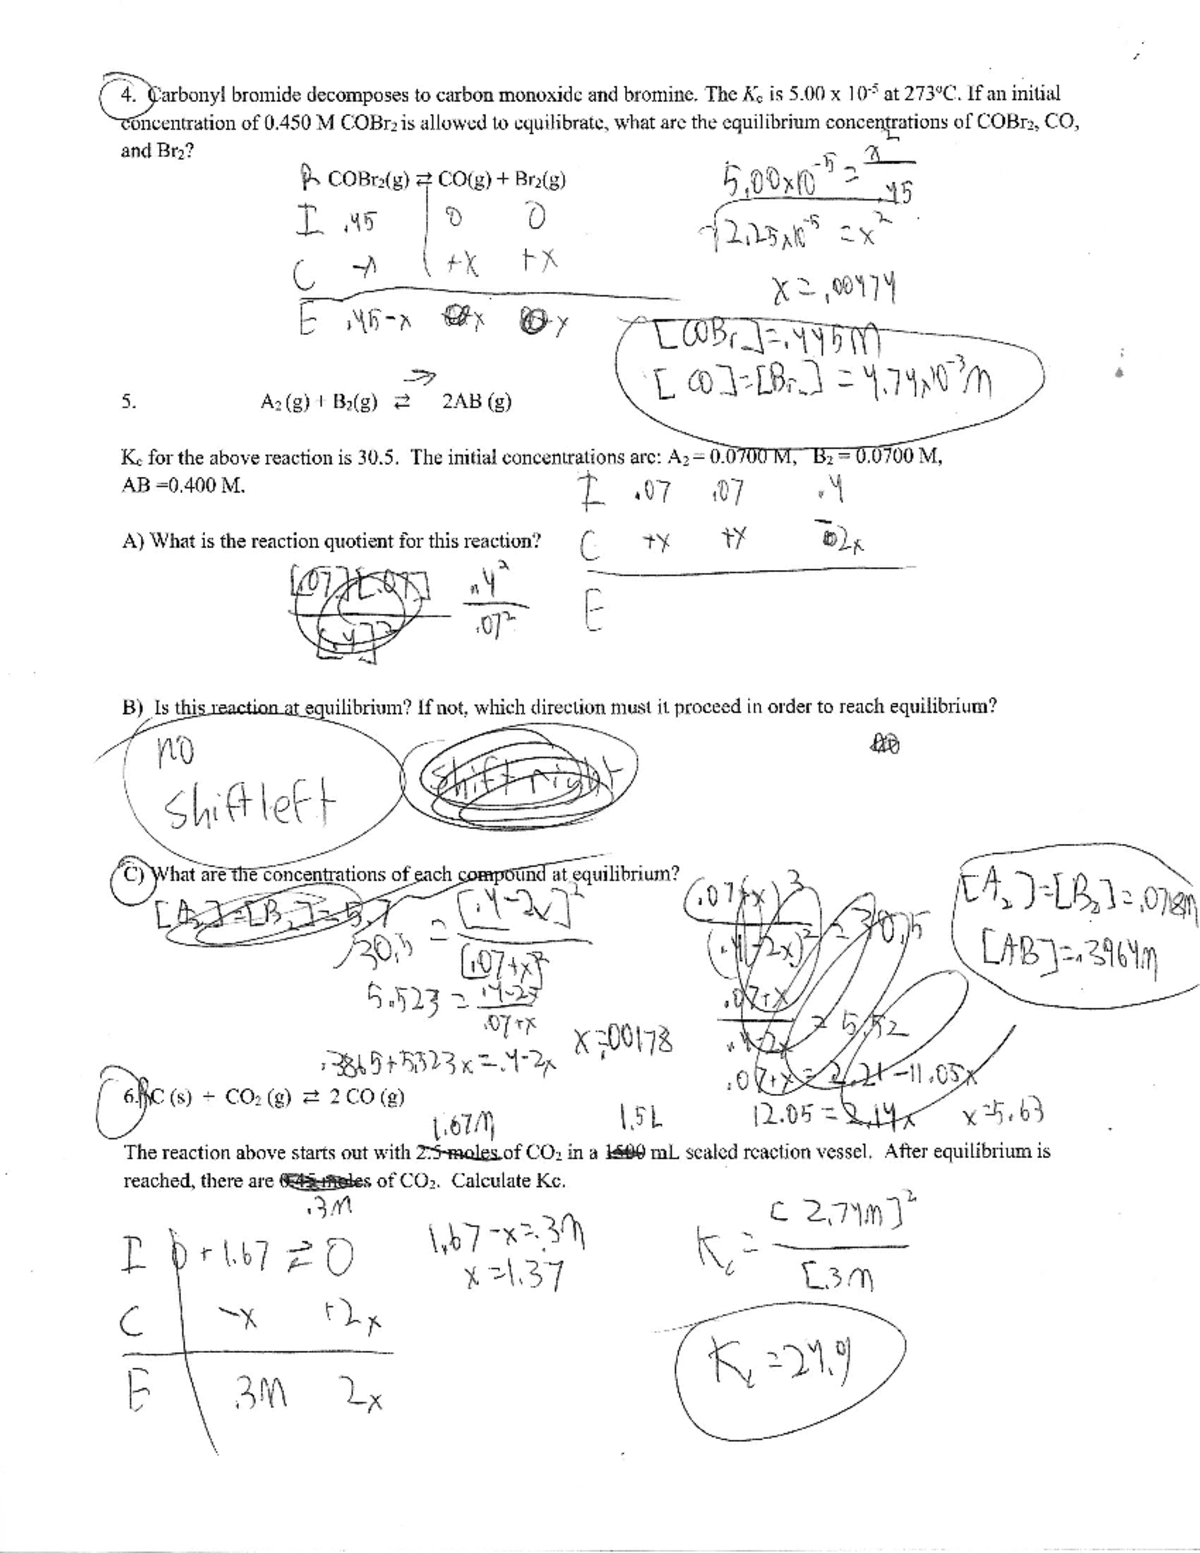 4. Carbonyl bromide decomposes to carbon monoxide and bromine. The Kc is 5.00 x 10-5 at 273°C. If an initial
concentration of 0.450 M COBr2 is allowed to equilibrate, what are the equilibrium concentrations of COBr2, CO,
and Br2?
R COBr2(g) ⇄ CO(g) + Br2(g)
I .45 0 0
C -x +x +x
E .45-x x x
5.00x10-5 = x2/.45
√2.25x10-5 = x2
x = .00474
[COBr2] = .445M
[CO]=[Br2] = 4.74x10-3M
5. A2 (g) + B2(g) ⇄ 2AB (g)
Kc for the above reaction is 30.5. The initial concentrations are: A2 = 0.0700 M, B2 = 0.0700 M,
AB =0.400 M.
I .07 .07 .4
C +x +x -2x
E
A) What is the reaction quotient for this reaction?
[.07][.07]/[.4]2 .42/.072
B) Is this reaction at equilibrium? If not, which direction must it proceed in order to reach equilibrium?
no
shift left
shift right
C) What are the concentrations of each compound at equilibrium?
[A2]=[B2]=5.7
√30.5 = [.4-2x]2/[.07+x]2
5.523 = .4-2x/.07+x
.3865+5.523x=.4-2x
x=.00178
(.07+x)2/(.4-2x)2 = 30.5
.07+x/.4-2x = 5.52
.07+x = 2.21-11.05x
12.05 = 2.14x x=5.63
[A2]=[B2]=.0718M
[AB]=.3964M
6. R C (s) + CO2 (g) ⇄ 2 CO (g)
1.67M 1.5L
The reaction above starts out with 2.5 moles of CO2 in a 1500 mL sealed reaction vessel. After equilibrium is
reached, there are 0.45 moles of CO2. Calculate Kc.
.3M
I 0 + 1.67 ⇄ 0
C -x +2x
E .3M 2x
1.67-x=.3M
x=1.37
Kc = [2.74M]2/[.3M
Kc = 24.9